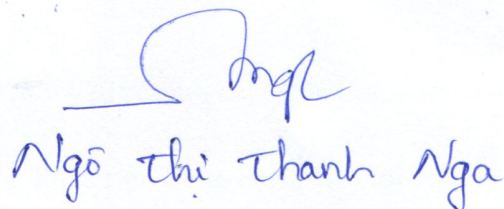 Ngô Thị Thanh Nga